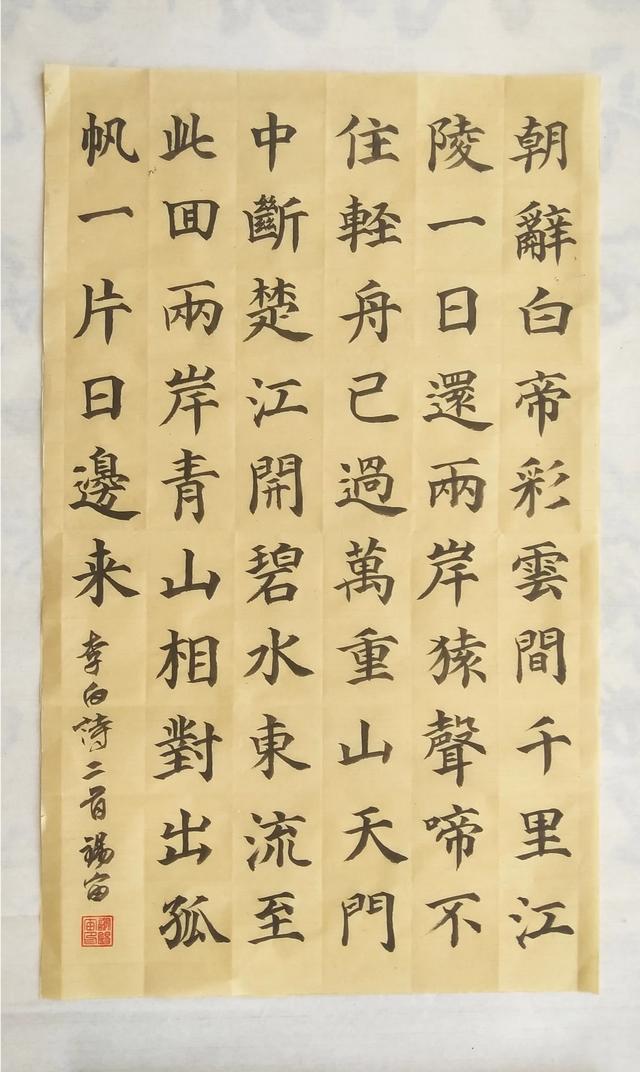 朝辭白帝彩雲間千里江
陵一日還兩岸猿聲啼不
住軽舟已過萬重山天門
中斷楚江開碧水東流至
此回兩岸青山相對出孤
帆一片日邊来
李白詩二首 錫富